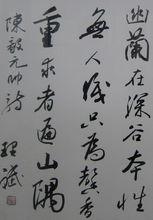 幽蘭在深谷本性
無人識只為馨香
重求者遍山隅
陳毅元帥詩